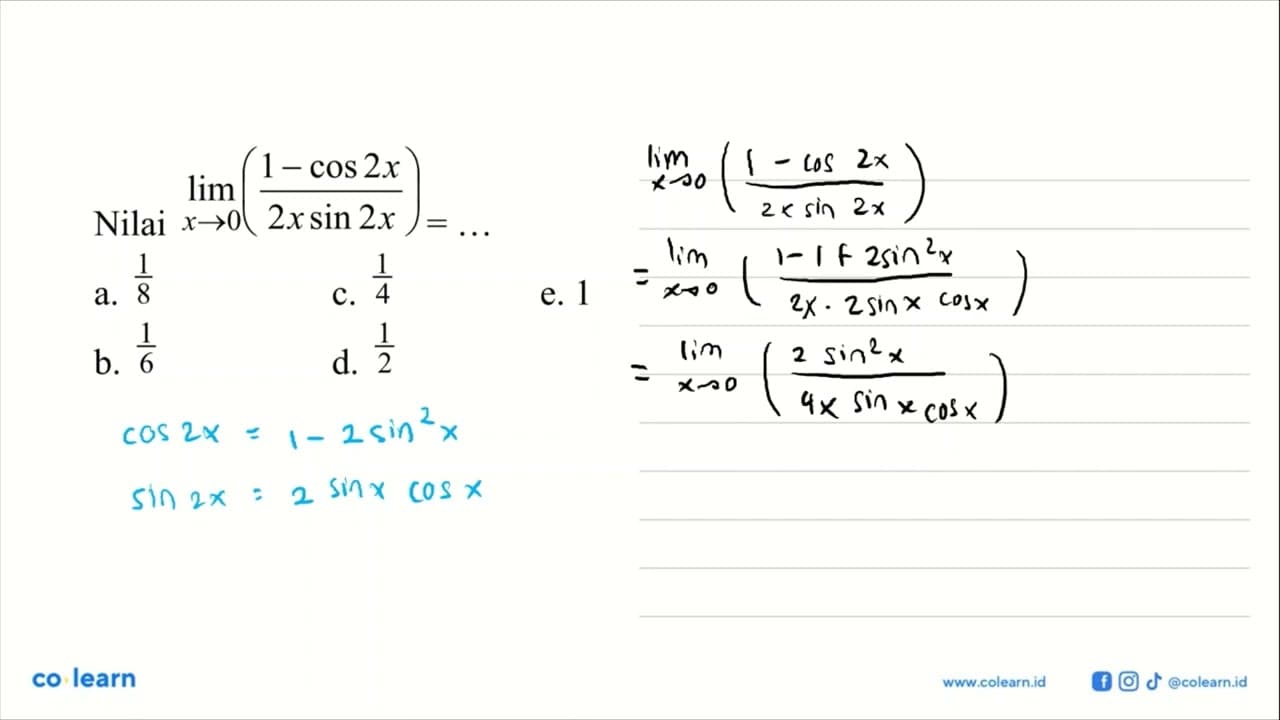 Nilai lim x→0 ( (1 – cos 2x) / (2x sin 2x) ) = ...
a. 1/8 c. 1/4 e. 1
b. 1/6 d. 1/2
cos 2x = 1 - 2 sin² x
sin 2x = 2 sin x cos x
lim x→0 ( (1 - cos 2x) / (2x sin 2x) )
= lim x→0 ( (1 - 1 + 2 sin² x) / (2x . 2 sin x cos x) )
= lim x→0 ( (2 sin² x) / (4x sin x cos x) )
co learn
www.colearn.id @colearn.id